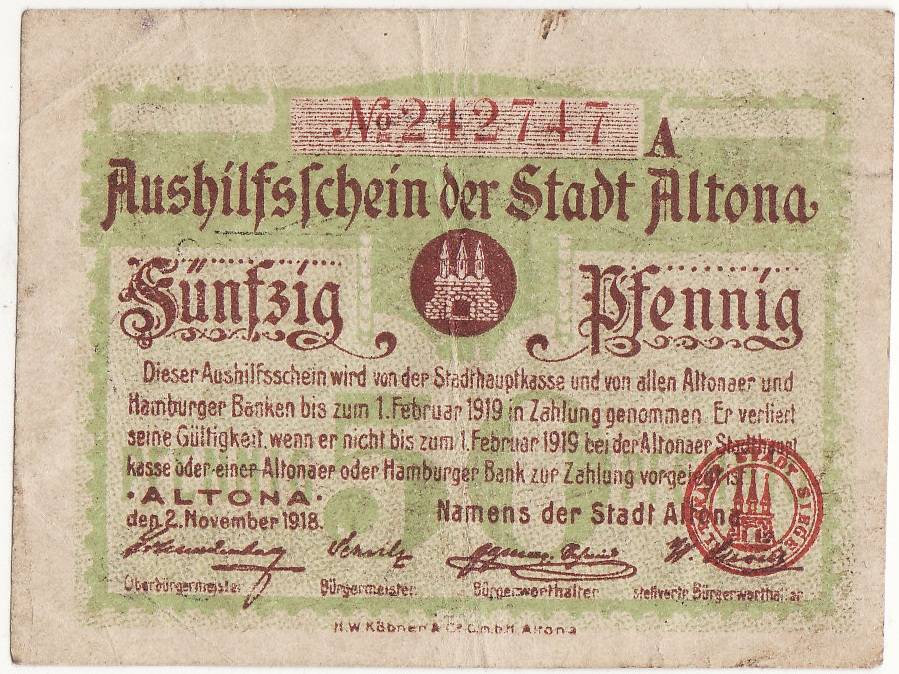 No 242747 A
Aushilfsschein der Stadt Altona
Fünfzig Pfennig
Dieser Aushilfsschein wird von der Stadthauptkasse und von allen Altonaer und
Hamburger Banken bis zum 1. Februar 1919 in Zahlung genommen. Er verliert
seine Gültigkeit, wenn er nicht bis zum 1. Februar 1919 bei der Altonaer Stadthaupt
kasse oder einer Altonaer oder Hamburger Bank zur Zahlung vorgelegt ist.
·ALTONA·
den 2. November 1918.
Namens der Stadt Altona
STADT SIEGEL
Schulz
Oberbürgermeister Bürgermeister Bürgerworthalter stellvertr. Bürgerworthalter
H.W. Köbner & Co. G.m.b.H. Altona